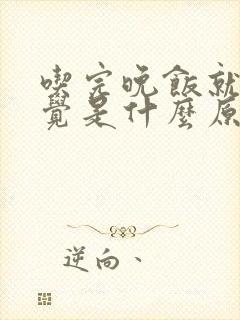 喫完晚飯就
覺是什麼原
逆向、